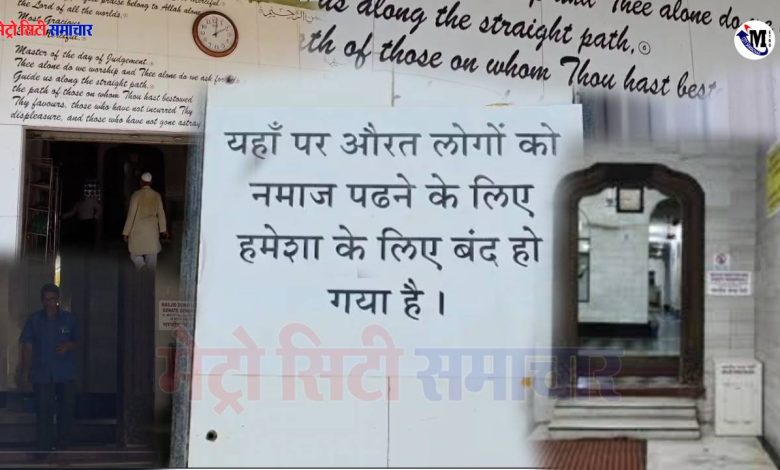 the Lord of all the worlds.
Most Gracious
Master of the day of Judgement.
Thee alone do we worship and Thee alone do we ask for
Guide us along the straight path,
the path of those on whom Thou hast bestowed
Thy favours, those who have not incurred Thy
displeasure, and those who have not gone astray
us along the straight path,
and Thee alone do
th of those on whom Thou hast best
मेट्रो सिटी समाचार
M
यहाँ पर औरत लोगों को
नमाज पढने के लिए
हमेशा के लिए बंद हो
गया है ।
मेट्रो सिटी समाचार